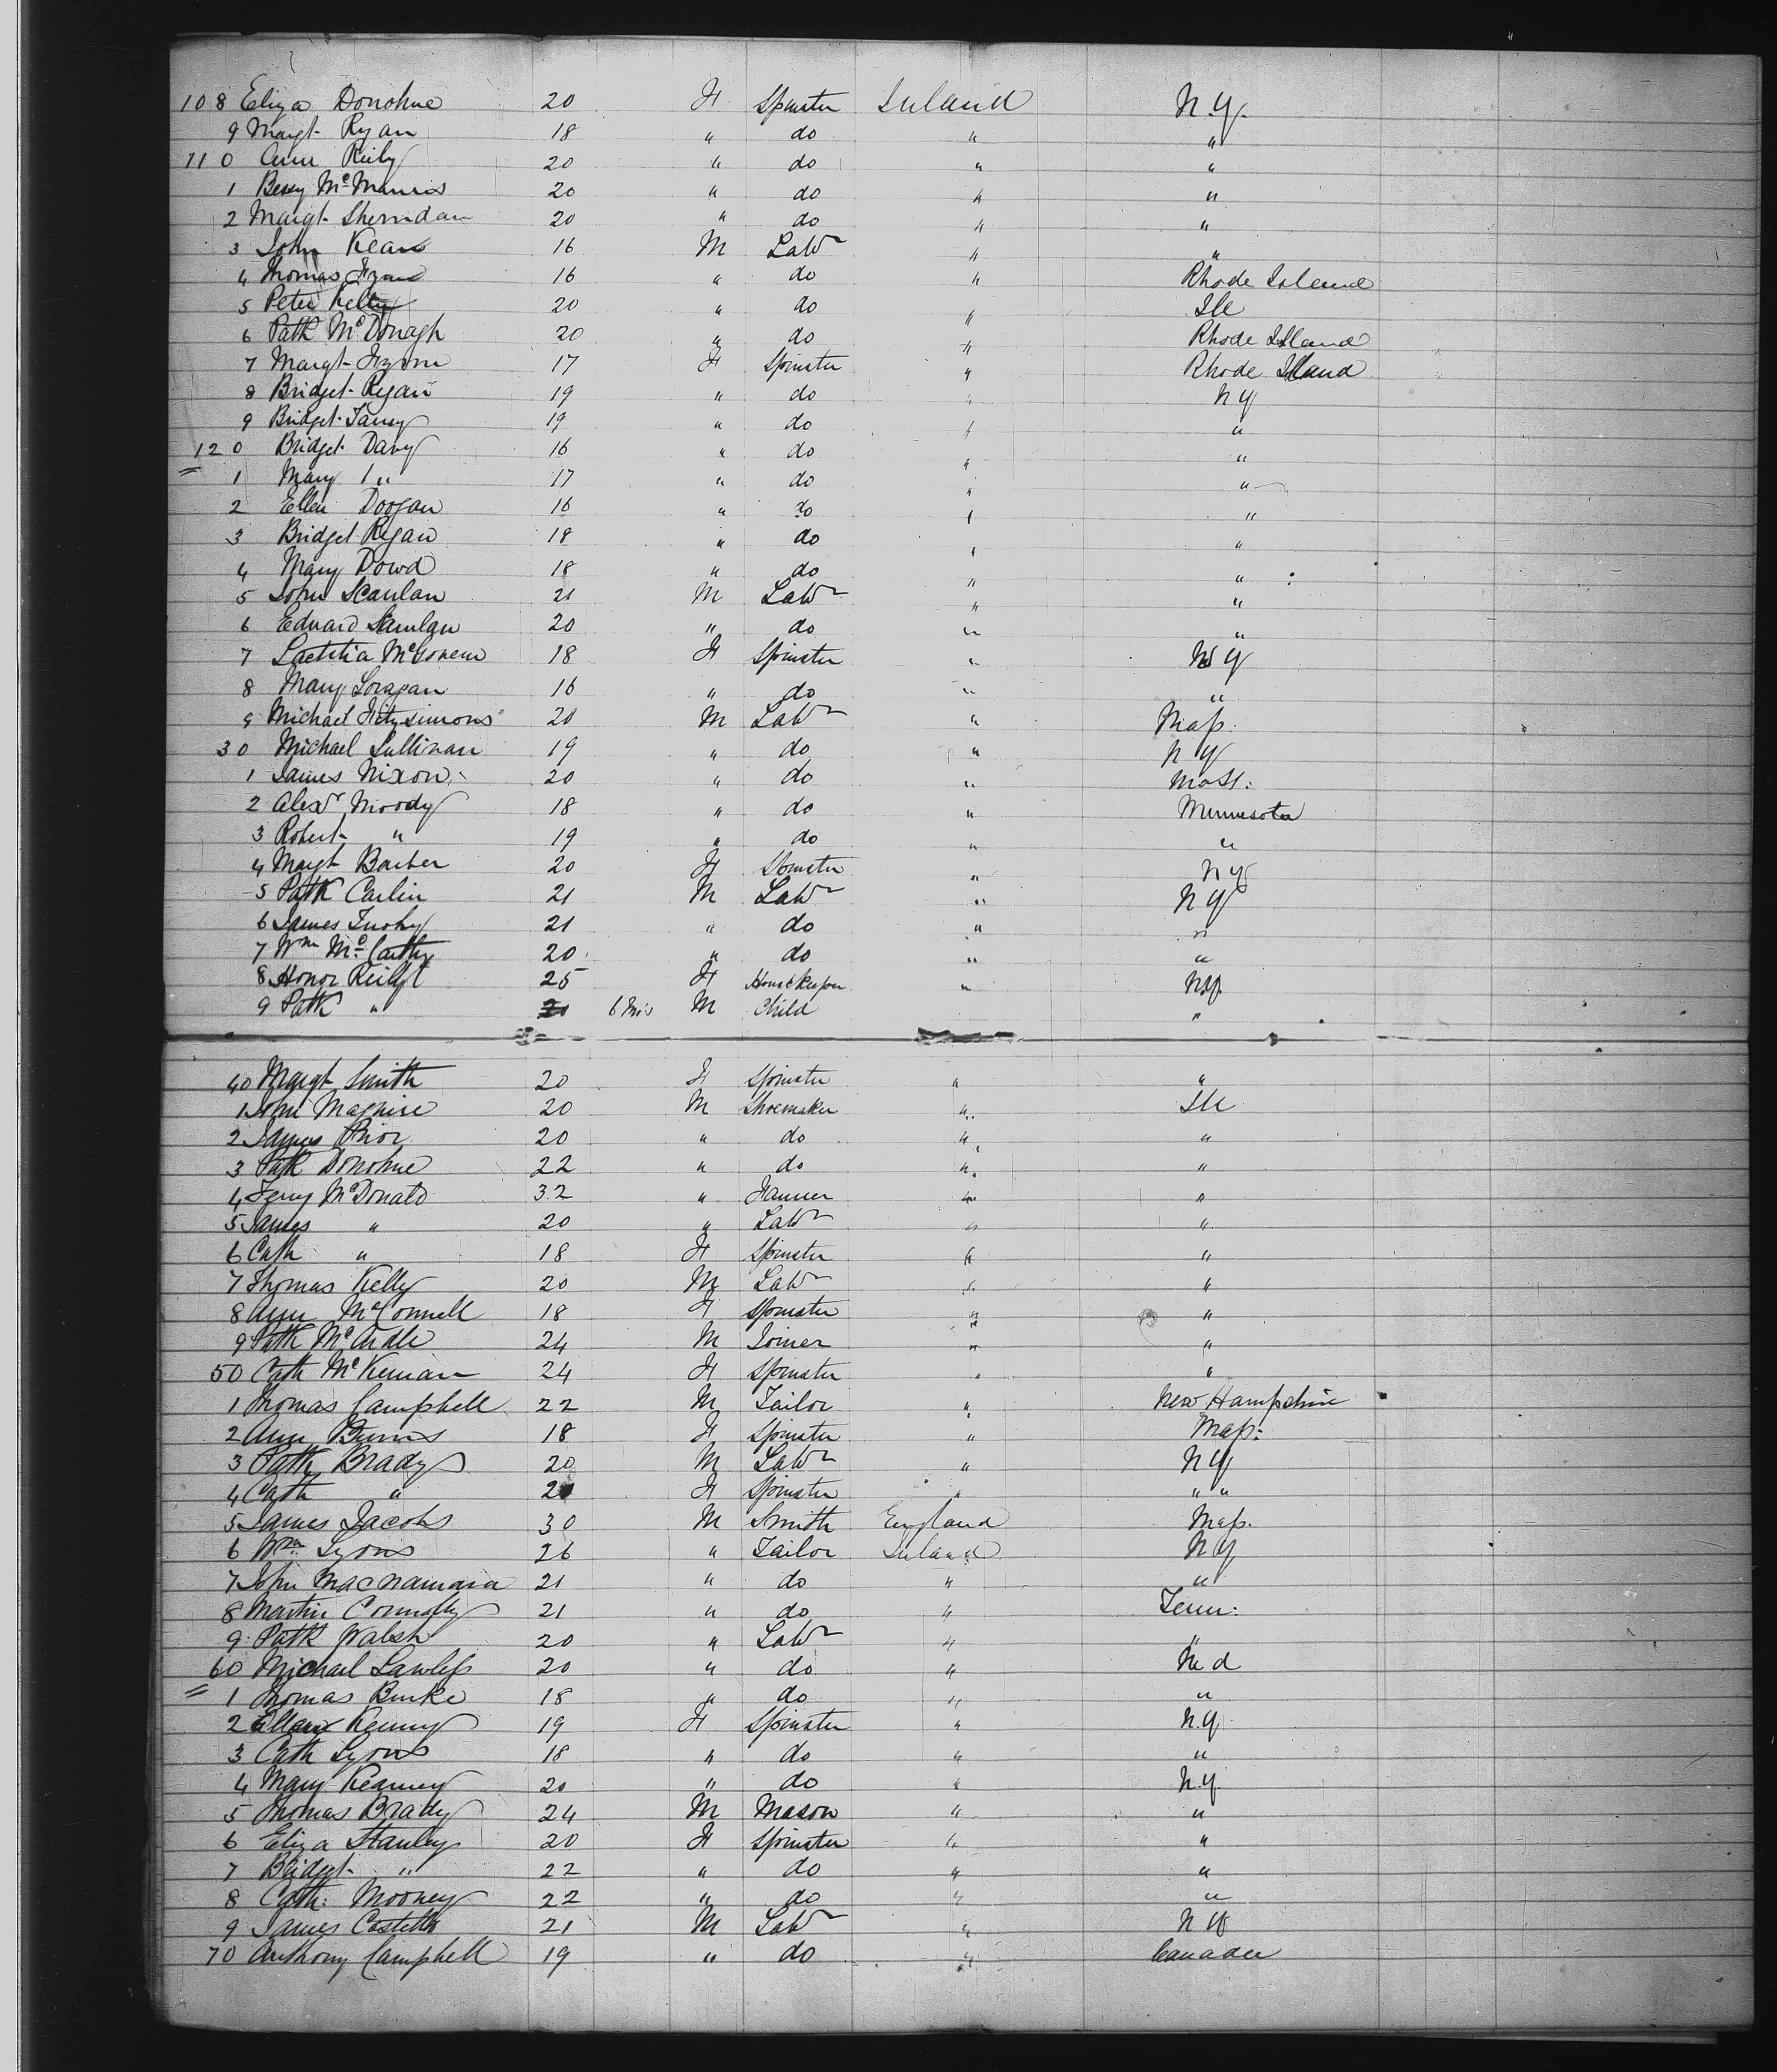 108 Eliza Donohue 20 F Spinster Ireland N.Y.
9 Margt Ryan 18 " do " "
110 Ann Reily 20 " do " "
1 Bessy McManus 20 " do " "
2 Margt Sherridan 20 " do " "
3 John Kean 16 M Labr " "
4 Thomas 16 " do " Rhode Island
5 Peter Kelly 20 " do " Ill
6 Patk McDonagh 20 " do " Rhode Island
7 Margt 17 F Spinster " Rhode Island
8 Bridget Regan 19 " do " N Y
9 Bridget 19 " do " "
120 Bridget Davy 16 " do " "
1 Mary " 17 " do " "
2 Ellen Doogan 16 " do " "
3 Bridget Regan 18 " do " "
4 Mary Dowd 18 " do " "
5 John Scanlan 21 M Labr " "
6 Edward Scanlan 20 " do " "
7 Laetitia McGovern 18 F Spinster " N Y
8 Mary 16 " do " "
9 Michael Fitzsimons 20 M Labr " Mass.
30 Michael Sullivan 19 " do " N Y
1 James Nixon 20 " do " Mass:
2 Alexr Moody 18 " do " Minnesota
3 Robert " 19 " do " "
4 Margt Barber 20 F Spinster " N Y
5 Patk Carlin 21 M Labr " N Y
6 James Tuohy 21 " do " "
7 Wm McCarthy 20 " do " "
8 Honor Reily 25 F Housekeeper " N.Y.
9 Patk " 6 Mos M Child "
40 Margt Smith 20 F Spinster " "
1 John Maguire 20 M Shoemaker " Ill
2 James Prior 20 " do " "
3 Patk Donohue 22 " do " "
4 Terry McDonald 32 " Farmer " "
5 James " 20 " Labr " "
6 Cath " 18 F Spinster " "
7 Thomas Kelly 20 M Labr " "
8 Ann McConnell 18 F Spinster " "
9 Patk McArdle 24 M Joiner " "
50 Cath McKernan 24 F Spinster " "
1 Thomas Campbell 22 M Tailor " New Hampshire
2 Ann Burns 18 F Spinster " Mass:
3 Patk Brady 20 M Labr " N Y
4 Cath " F Spinster " " "
5 James Jacobs 30 M Smith England Mass.
6 Wm Lyons 26 " Tailor Ireland N Y
7 John Macnamara 21 " do " "
8 Martin Connolly 21 " do " Tenn:
9 Patk Walsh 20 " Labr " "
60 Michael Lawless 20 " do " Md
1 Thomas Burke 18 " do " "
2 Ellen Kenny 19 F Spinster " N.Y.
3 Cath Lyons 18 " do " "
4 Mary Kearney 20 " do " N.Y.
5 Thomas Brady 24 M Mason " "
6 Eliza Stanley 20 F Spinster " "
7 Bridget " 22 " do " "
8 Cath: Mooney 22 " do " "
9 James Costello 21 M Labr " N Y
70 Anthony Campbell 19 " do " Canada